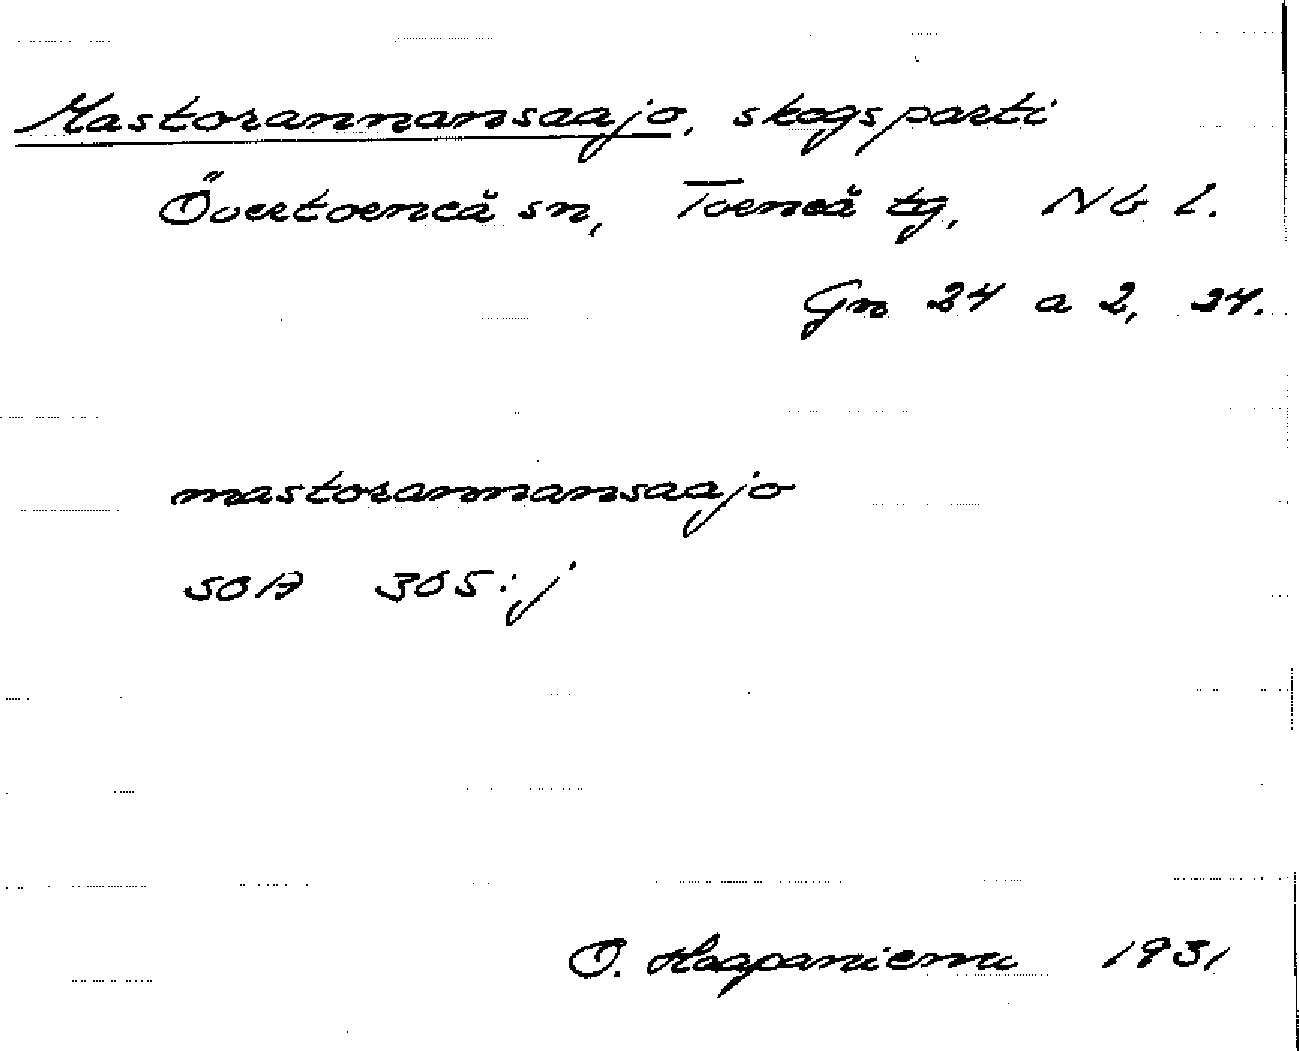 Mastorannansaajo, skogsparti
Övertorneå sn, Torneå tg, NB l.
Gn 24 a 2, 24.
mastorannansaajo
SOA 305:j
O. Haapaniemi 1931